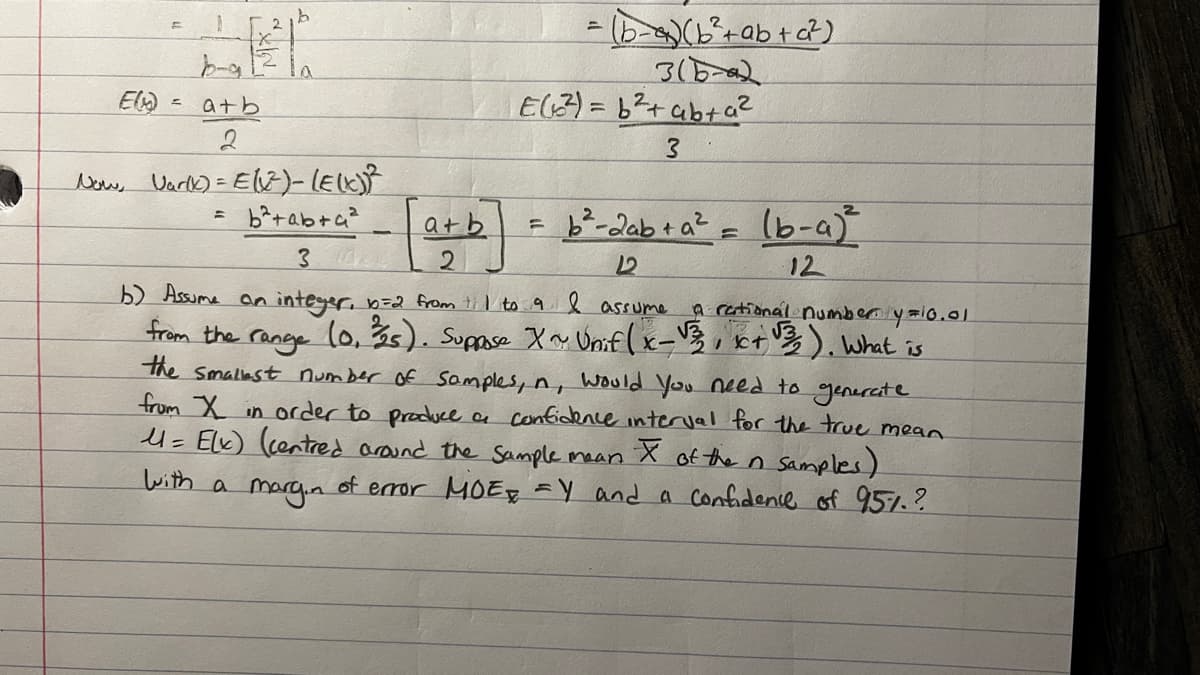 = 1/(b-a) [x²/2] |ₐᵇ
E(x) = (a+b)/2
= (b-a)(b²+ab+a²)
3(b-a)
E(x²) = (b²+ab+a²)/3
Now, Var(x) = E(x²) - (E(x))²
= (b²+ab+a²)/3 - [(a+b)/2] = (b²-2ab+a²)/12 = (b-a)²/12
b) Assume an integer, x=2 from 1 to 9 & assume a rational number y=0.01
from the range (0, 2/25). Suppose X ~ Unif(x-√3/2, x+√3/2). What is
the smallest number of samples, n, would you need to generate
from X in order to produce a confidence interval for the true mean
μ = E(x) (centred around the sample mean X̅ of the n samples)
with a margin of error MOE_x̅ = y and a confidence of 95%.?